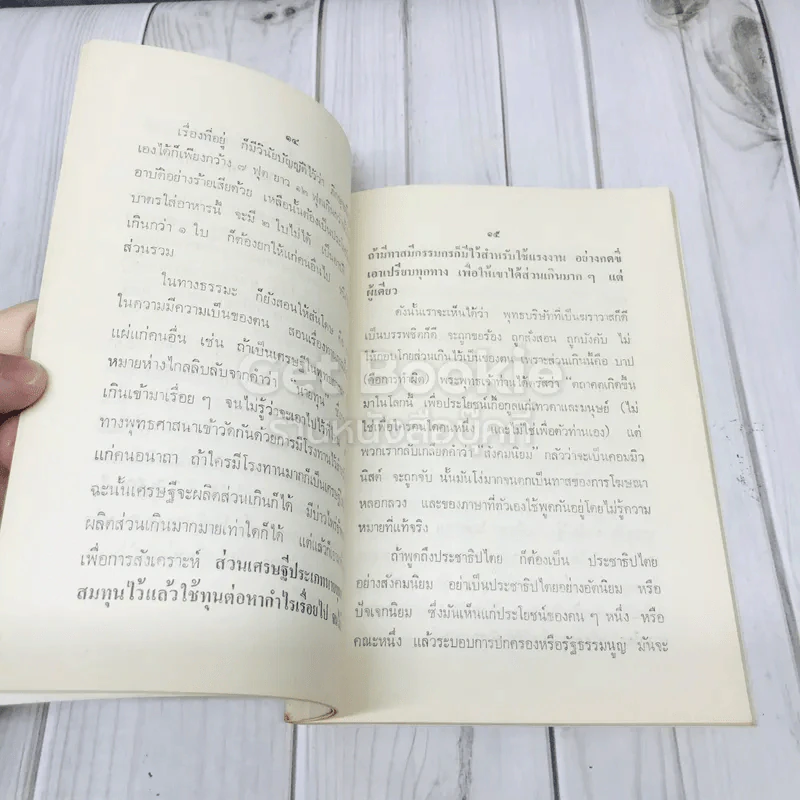 ๑๔
เรื่องที่อยู่ ก็มีวินัยบัญญัติไว้ว่า
เองได้ก็เพียงกว้าง ๗ ฟุต ยาว ๑๒ ฟุต
อาบัติอย่างร้ายเสียด้วย เหลือนั้นต้องเป็น
บาตรใส่อาหารนี้ จะมี ๒ ใบไม่ได้
เกินกว่า ๑ ใบ ก็ต้องยกให้แก่คนอื่นไป
ส่วนรวม
ในทางธรรมะ ก็ยังสอนให้สันโดษ คือ
ในความมีความเป็นของตน สอนเรื่อง
แผ่แก่คนอื่น เช่น ถ้าเป็นเศรษฐี
หมายห่างไกลลิบลับจากคำว่า "นายทุน"
เกินเข้ามาเรื่อย ๆ จนไม่รู้ว่าจะเอาไปไว้
ทางพุทธศาสนาเขาวัดกันด้วยการมีโรงทาน
แก่คนอนาถา ถ้าใครมีโรงทานมากก็เป็นเศรษฐี
ฉะนั้นเศรษฐีจะผลิตส่วนเกินก็ได้ มีบ่าวไพร่
ผลิตส่วนเกินมากมายเท่าใดก็ได้ แต่แล้วก็
เพื่อการสังเคราะห์ ส่วนเศรษฐีประเภทนายทุน
สมทุนไว้แล้วใช้ทุนต่อหากำไรเรื่อยไป
๑๕
ถ้ามีทาสมีกรรมกรก็มีไว้สำหรับใช้แรงงาน อย่างกดขี่
เอาเปรียบทุกทาง เพื่อให้เขาได้ส่วนเกินมาก ๆ แต่
ผู้เดียว
ดังนั้นเราจะเห็นได้ว่า พุทธบริษัทที่เป็นฆราวาสก็ดี
เป็นบรรพชิตก็ดี จะถูกขอร้อง ถูกสั่งสอน ถูกบังคับ ไม่
ให้กอบโกยส่วนเกินไว้เป็นของตน เพราะส่วนเกินนี้คือ บาป
(คือการทำผิด) พระพุทธเจ้าท่านได้ตรัสว่า "ตถาคตเกิดขึ้น
มาในโลกนี้ เพื่อประโยชน์เกื้อกูลแก่เทวดาและมนุษย์ (ไม่
ใช่เพื่อใครคนใดคนหนึ่ง และไม่ใช่เพื่อตัวท่านเอง) แต่
พวกเรากลับเกลียดคำว่า "สังคมนิยม" กลัวว่าจะเป็นคอมมิว
นิสต์ จะถูกจับ นั้นมันโง่มากจนตกเป็นทาสของการโฆษณา
หลอกลวง และของภาษาที่ตัวเองใช้พูดกันอยู่โดยไม่รู้ความ
หมายที่แท้จริง
ถ้าพูดถึงประชาธิปไตย ก็ต้องเป็น ประชาธิปไตย
อย่างสังคมนิยม อย่าเป็นประชาธิปไตยอย่างอัตนิยม หรือ
ปัจเจกนิยม ซึ่งมันเห็นแก่ประโยชน์ของคน ๆ หนึ่ง หรือ
คณะหนึ่ง แล้วระบอบการปกครองหรือรัฐธรรมนูญ มันจะ
Get Bookie
ร้านหนังสือบุ๊คกี้